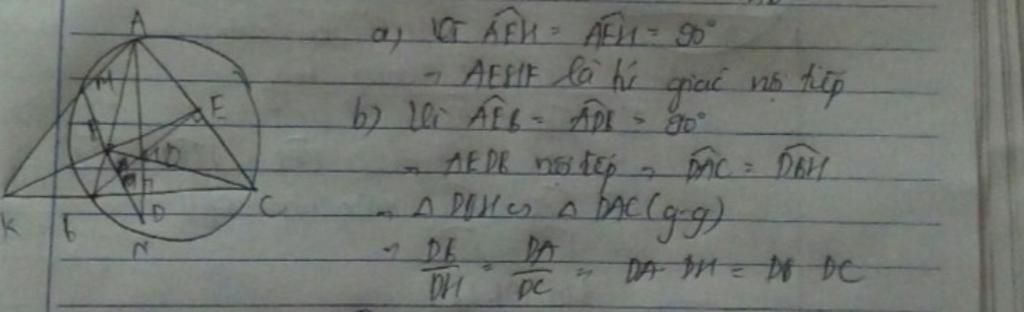 A
M
E
K
B
D
C
N
a) Vì AFH = AEH = 90°
→ AEHF là tứ giác nội tiếp
b) Vì AEB = ADB = 90°
→ AEDB nội tiếp → DAC = DBH
→ △ DBH ∽ △ DAC (g-g)
→ DB/DH = DA/DC → DA DH = DB DC